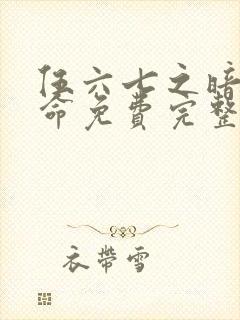 伍六七之暗
命免费完整
衣带雪